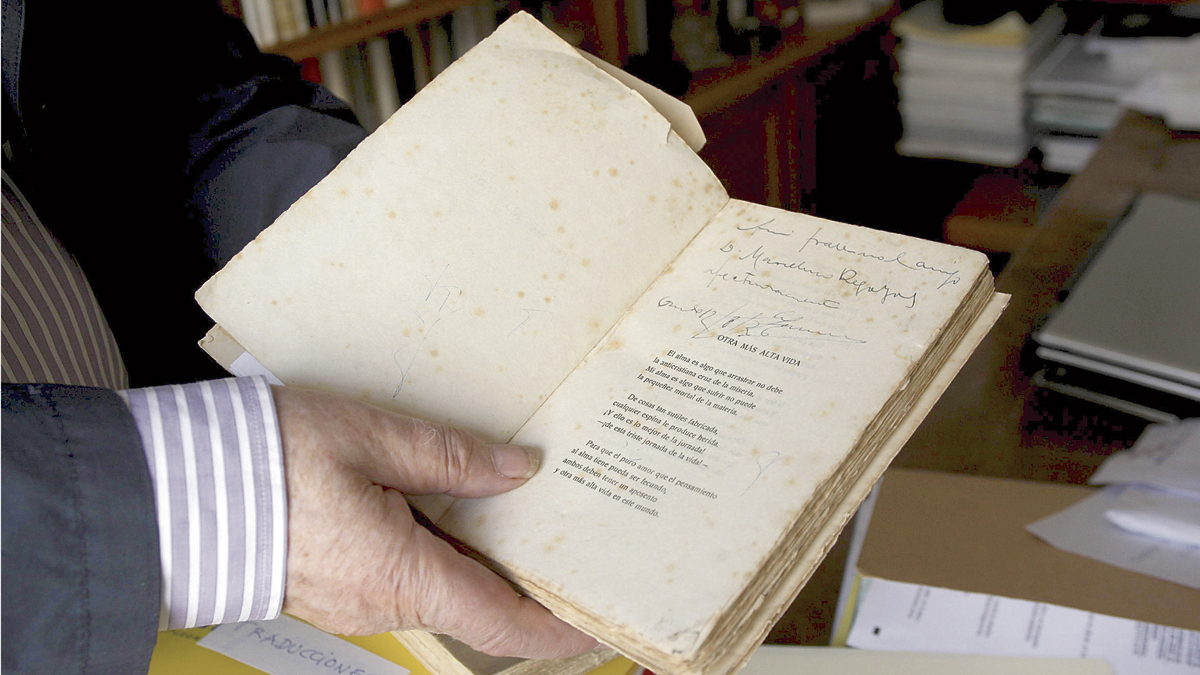 A mi fraternal amigo
D. Marcelino
afectuosamente
OTRA MÁS ALTA VIDA
El alma es algo que arrastrar no debe
la anticristiana cruz de la miseria.
Mi alma es algo que sufrir no puede
la pequeñez mortal de la materia.
De cosas tan sutiles fabricada,
cualquier espina le produce herida.
¡Y ello es lo mejor de la jornada!
—¡de esta triste jornada de la vida!—
Para que el puro amor que el pensamiento
al alma tiene pueda ser fecundo,
ambos deben tener un aposento
y otra más alta vida en este mundo.
RADUCCIONE